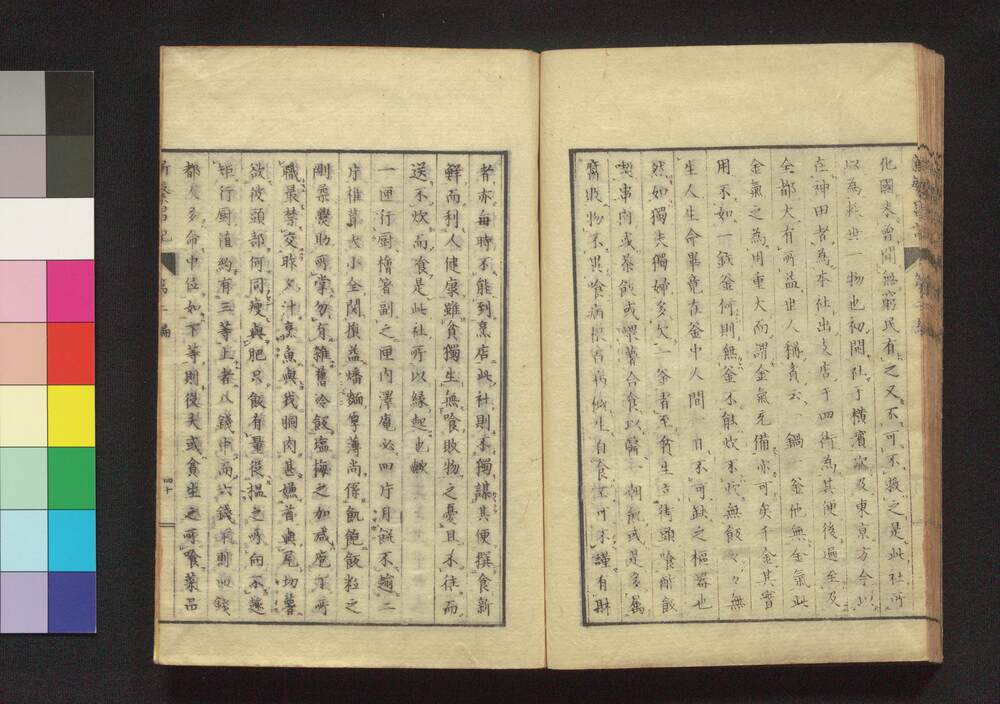 化國泰曾聞無窮民有之又不可不救之是此社所
以為救世一物也初開社于横賓次及東京方今以
在神田者為本社出支店于四街為其便後遍至及
全都大有所益世人稱貧云一鍋一釜他無金氣此
金氣之為用重大而謂金氣充備亦可矣千金其實
用不如一鉄釜何則無釜不能炊不炊無飯々々無
生人生命畢竟在釜中人間一日不可缺之樞器也
然如獨夫獨婦多欠一釜者至貧生立街頭喰鮓飯
喫串肉或茶飯或喂薯合食以醫一朝飢或是多属
腐敗物不異喰病根者病械生自食不可不謹有財
者亦每時不能到烹店此社則不獨謀其便撰食新
鮮而利人健康雖貧獨生無喰敗物之憂且不往而
送不炊而食是此社所以緣起也歟
一匣行厨檜箸副之匣内澤庵必四片月籠不踰二
片椎茸大小全関損益燔麵厚薄尚係飢飽飯粒之
剛柔爨助所掌勿有雜舊冷飯塩梅之加减庖丁所
職最禁交睞多汁烹魚與我胴肉甚嫌首與尾切薯
欲彼頭部何同瘦與肥只飯有量從揾之所向不違
矩行厨值約有三等上者八錢中而六錢下則四錢
都人多命中位如下等則役夫或貧生之所喰菜品